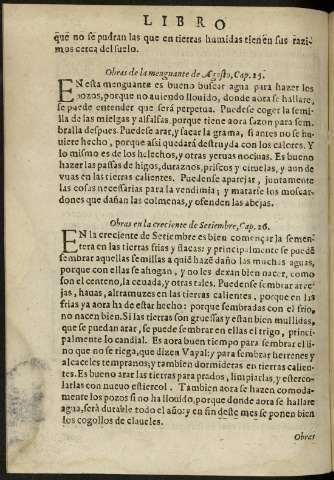 LIBRO
que no se pudran las que en tierras humidas tienen sus razi-
mos cerca del suelo.
Obras de la menguante de Agosto, Cap. 25.
EN esta menguante es bueno buscar agua para hazer los
pozos, porque no auiendo llouido, donde aora se hallare,
se puede entender que será perpetua. Puedese coger la semi
lla de las mielgas y alfalfas, porque tiene aora sazon para sem-
bralla despues. Puedese arar, y sacar la grama, si antes no se hu
uiere hecho, porque assi quedará destruyda con los calores. Y
lo mismo es de los helechos, y otras yeruas nociuas. Es bueno
hazer las passas de higos, duraznos, priscos y ciruelas, y aun de
vuas en las tierras calientes. Puedense aparejar, juntamente
las cosas necessarias para la vendimia; y matarse los moscar-
dones que dañan las colmenas, y ofenden las abejas.
Obras en la creciente de Setiembre, Cap. 26.
EN la creciente de Setiembre es bien començar la semen-
tera en las tierras frias y flacas: y principalmente se puedē
sembrar aquellas semillas a quiē haze daño las muchas aguas,
porque con ellas se ahogan, y no les dexan bien nacer, como
son el centeno, la ceuada, y otras tales. Puedense sembrar arue
jas, hauas, altramuzes en las tierras calientes, porque en las
frias ya aora ha de estar hecho: porque sembradas con el frio,
no nacen bien. Si las tierras son gruessas y estan bien mullidas,
que se puedan arar, se puede sembrar en ellas el trigo, princi-
palmente lo candial. Es aora buen tiempo para sembrar el li-
no que no se riega, que dizen Vayal; y para sembrar herrenes y
alcaceles tempranos; y tambien dormideras en tierras calien-
tes. Es bueno arar las tierras para prados, limpiarlas, y estercо-
larlas con nueuo estiercol. Tambien aora se hazen comoda-
mente los pozos si no ha llouido, porque donde aora se hallare
agua, será durable todo el año: y en fin deste mes se ponen bien
los cogollos de claueles.
Obras